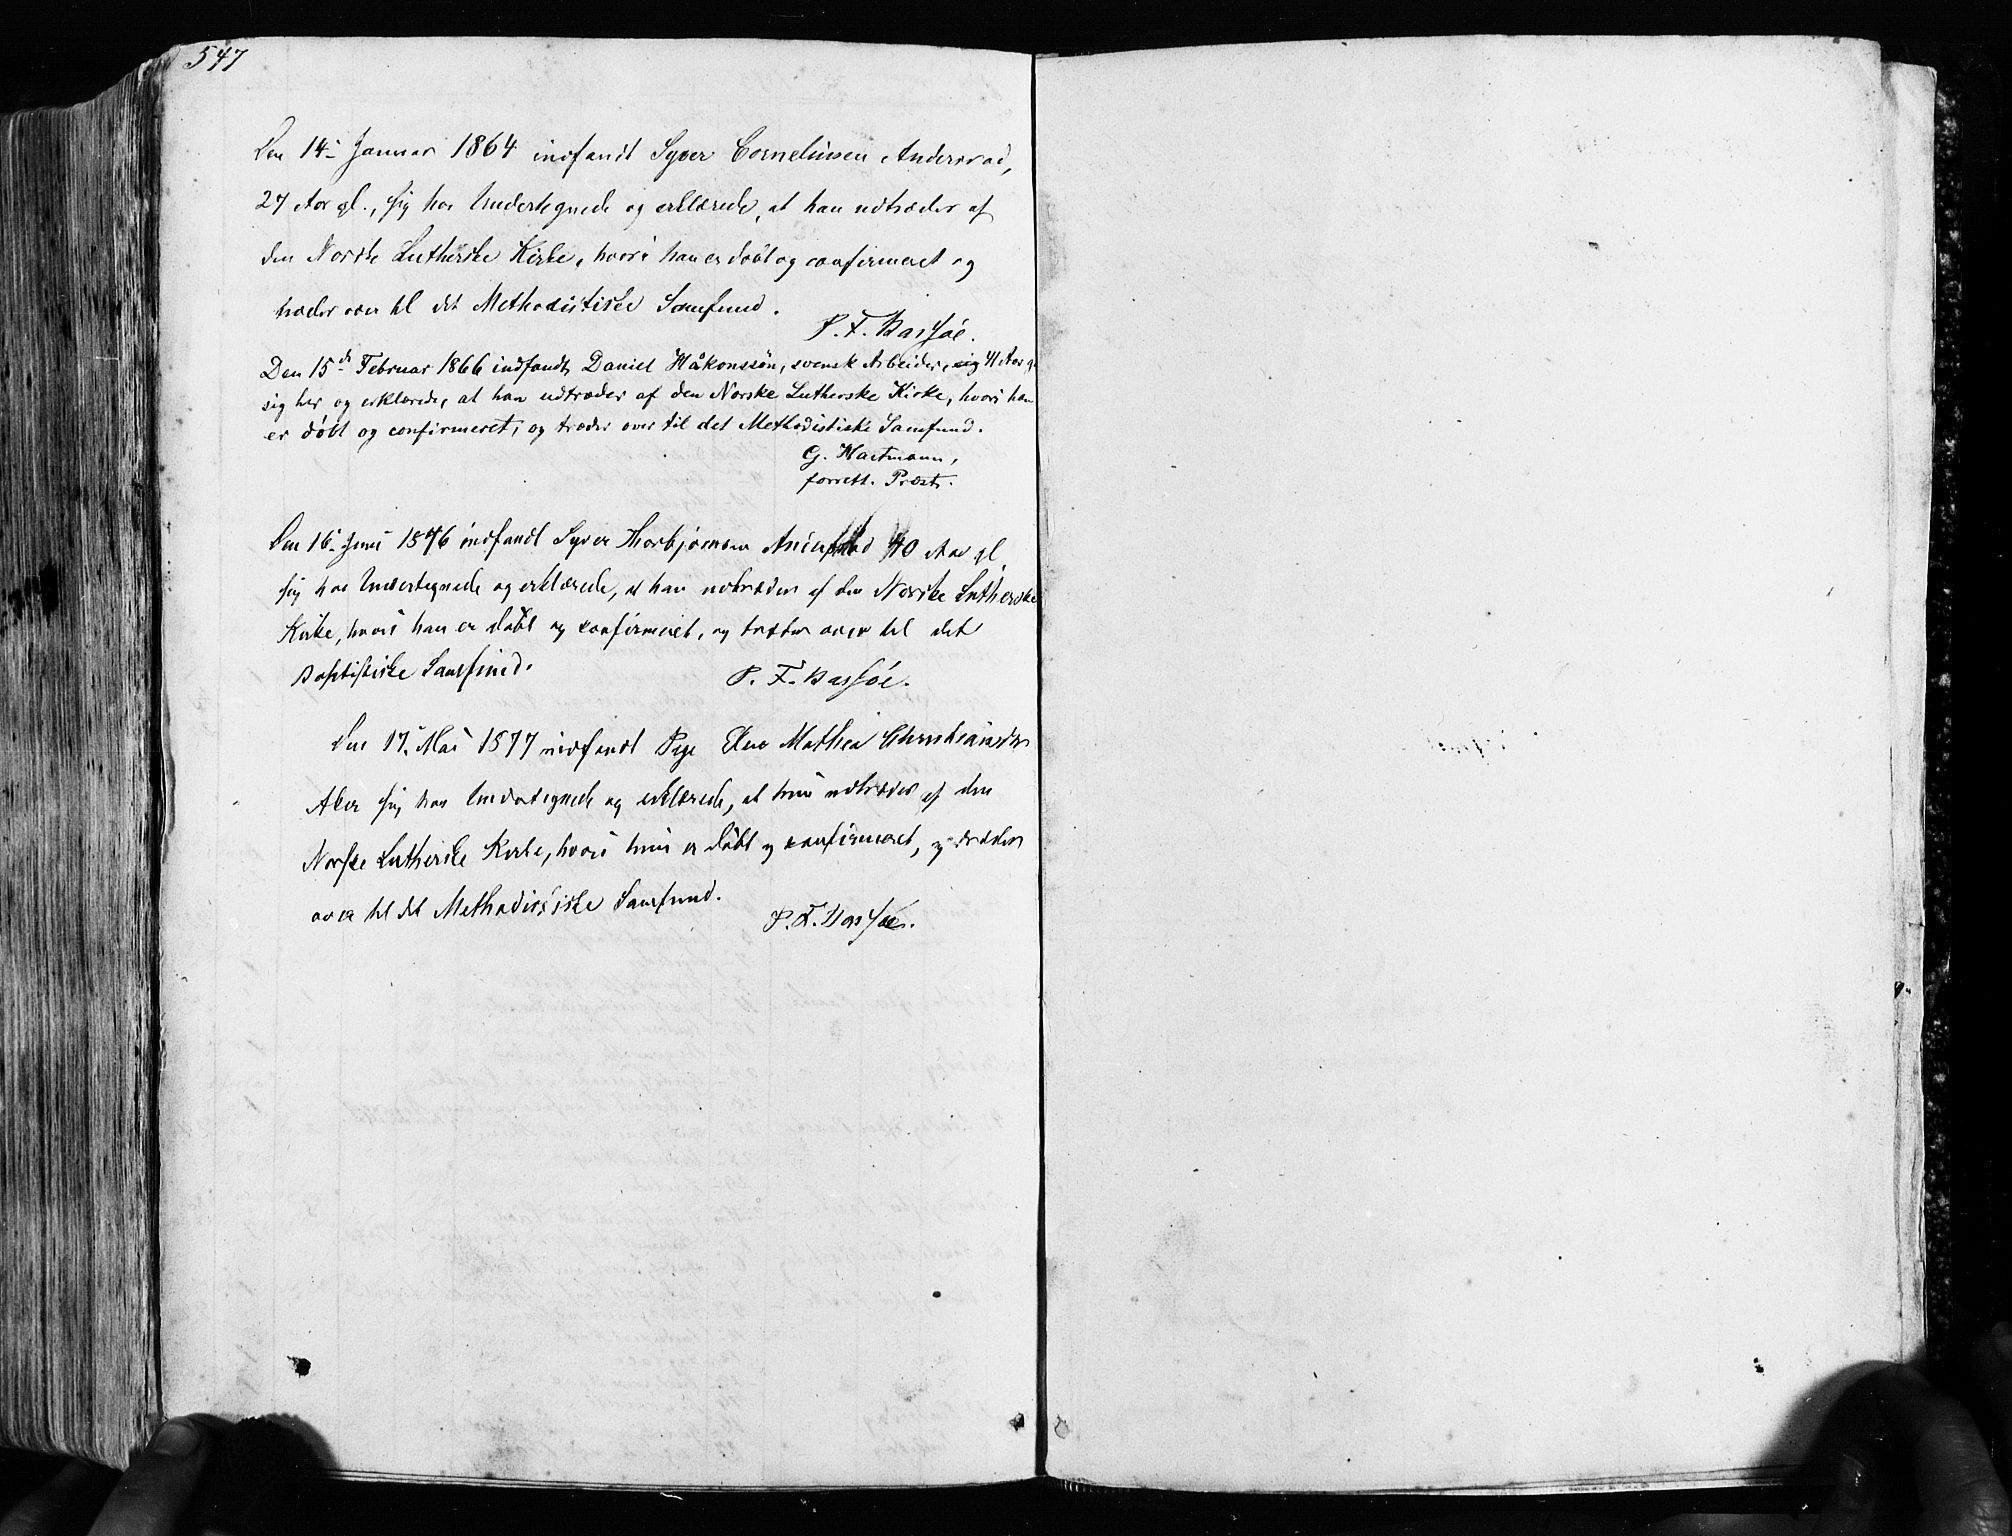 547
Den 14. Januar 1864 indfandt Syver Corneliusen Andersrød,
27 Aar gl., sig hos Undertegnede og erklærede, at han udtræder af
den Norske Lutherske Kirke, hvori han er døbt og confirmeret og
træder over til det Methodistiske Samfund.
P. F. Bassøe.
Den 15de Februar 1866 indfandt Daniel Håkonssön, svensk Arbeider, sig 41 Aar g
sig her og erklærede, at han udtræder af den Norske Lutherske Kirke, hvori han
er döbt og confirmeret, og træder over til det Methodistiske Samfund.
G. Hartmann,
forrett. Præst.
Den 16. Juni 1876 indfandt Syver Thorbjørnsen 40 Aar gl.
sig hos Undertegnede og erklærede, at han udtræder af den Norske Lutherske
Kirke, hvori han er døbt og confirmeret, og træder over til det
Baptistiske Samfund.
P. F. Bassøe.
Den 17. Mai 1877 indfandt Pige Mathea Christiansdr
Aker sig hos Undertegnede og erklærede, at hun udtræder af den
Norske Lutherske Kirke, hvori hun er døbt og confirmeret, og træder
over til det Methodistiske Samfund.
P. F. Bassøe.